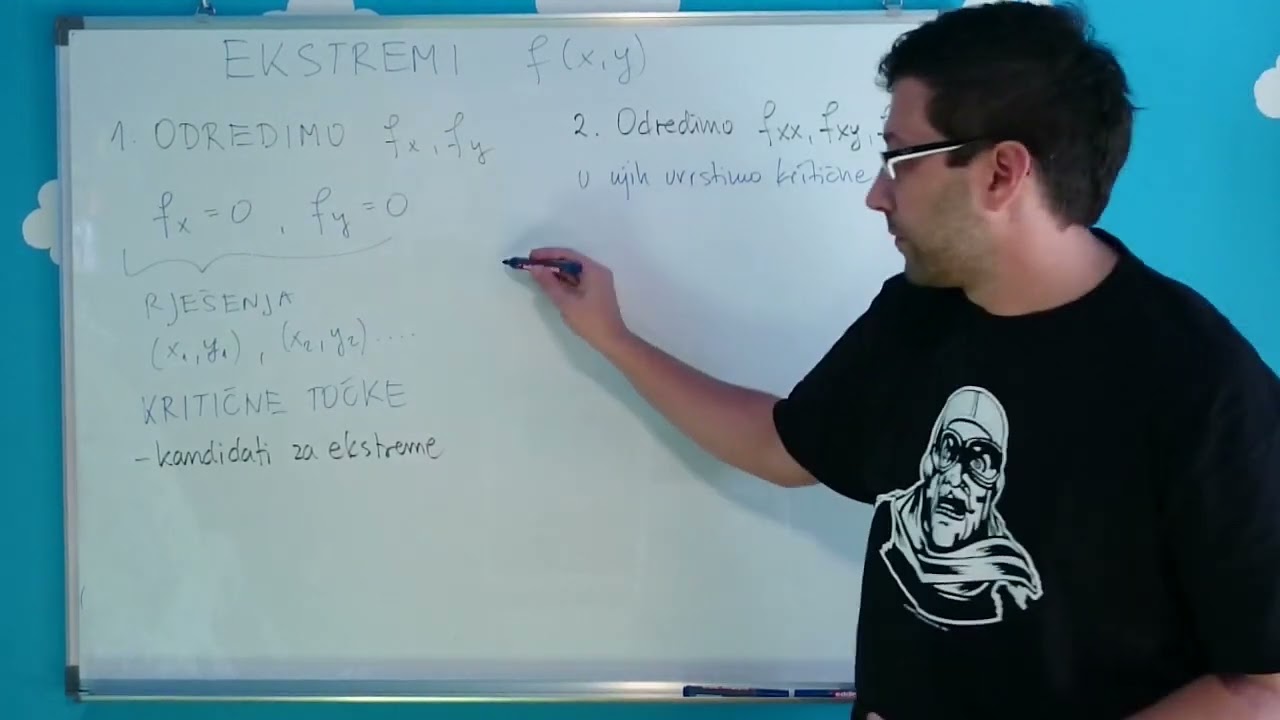 EKSTREMI f(x,y)
1. ODREDIMO fx, fy
fx = 0 , fy = 0
RJEŠENJA
(x1,y1) , (x2,y2) ....
KRITIČNE TOČKE
- kandidati za ekstreme
2. Odredimo fxx, fxy,
u njih uvrstimo kritične